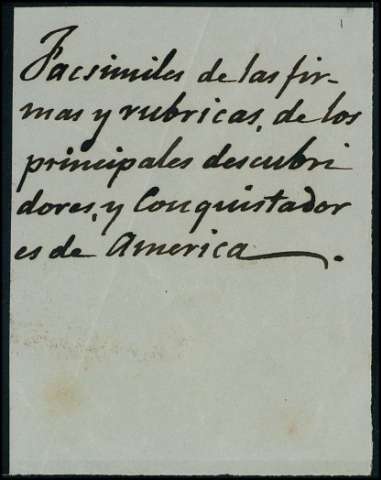 1
Facsimiles de las fir-
mas y rubricas, de los
principales descubri
dores, y Conquistador
es de America.